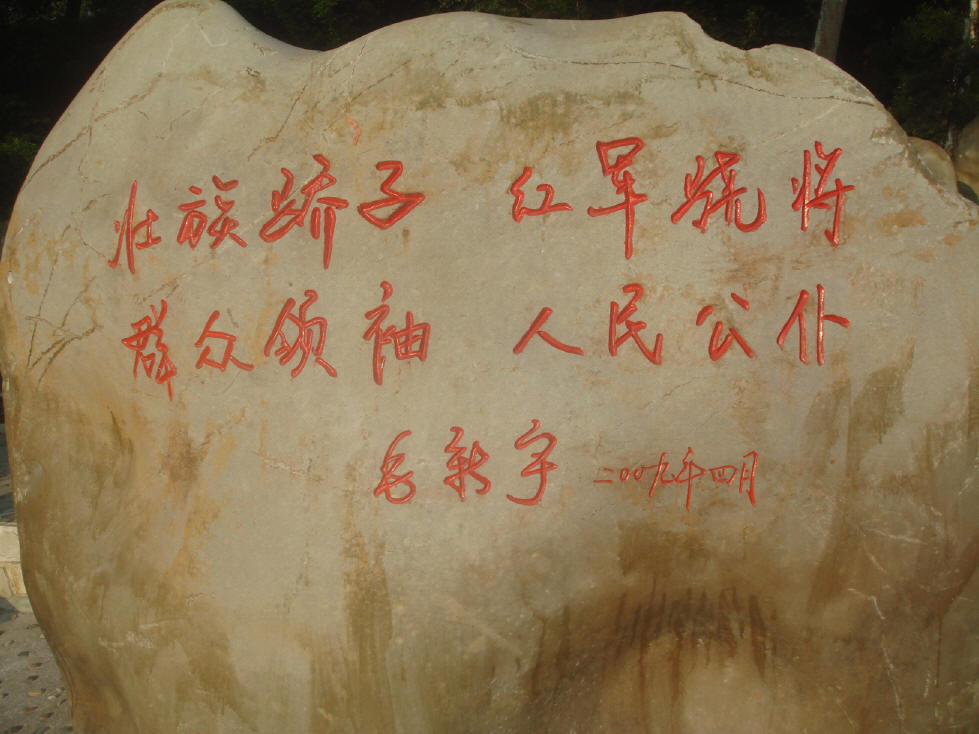 壮族骄子 红军骁将
群众领袖 人民公仆
毛新宇 二00九年四月